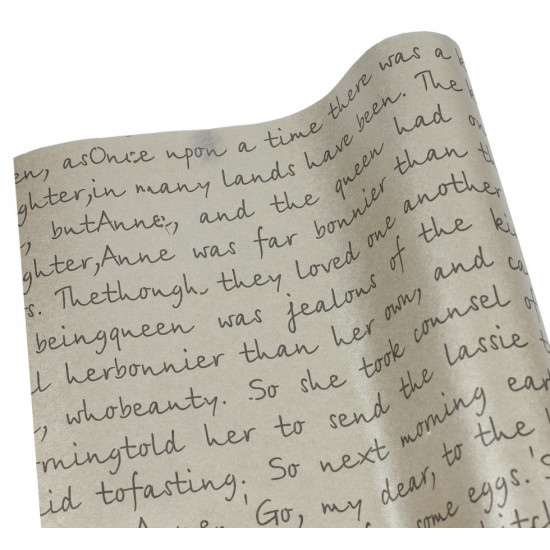 en, asOnce upon a time there was a
ghter,in many lands have been. The
, butAnne, and the queen had
ghter,Anne was far bonnier than
s. Thethough they loved one another
beingqueen was jealous of the ki
herbonnier than her own, and ca
, whobeauty. So she took counsel of
mingtold her to send the lassie
id tofasting; So next morning ear
Go, my dear, to the
some eggs.'